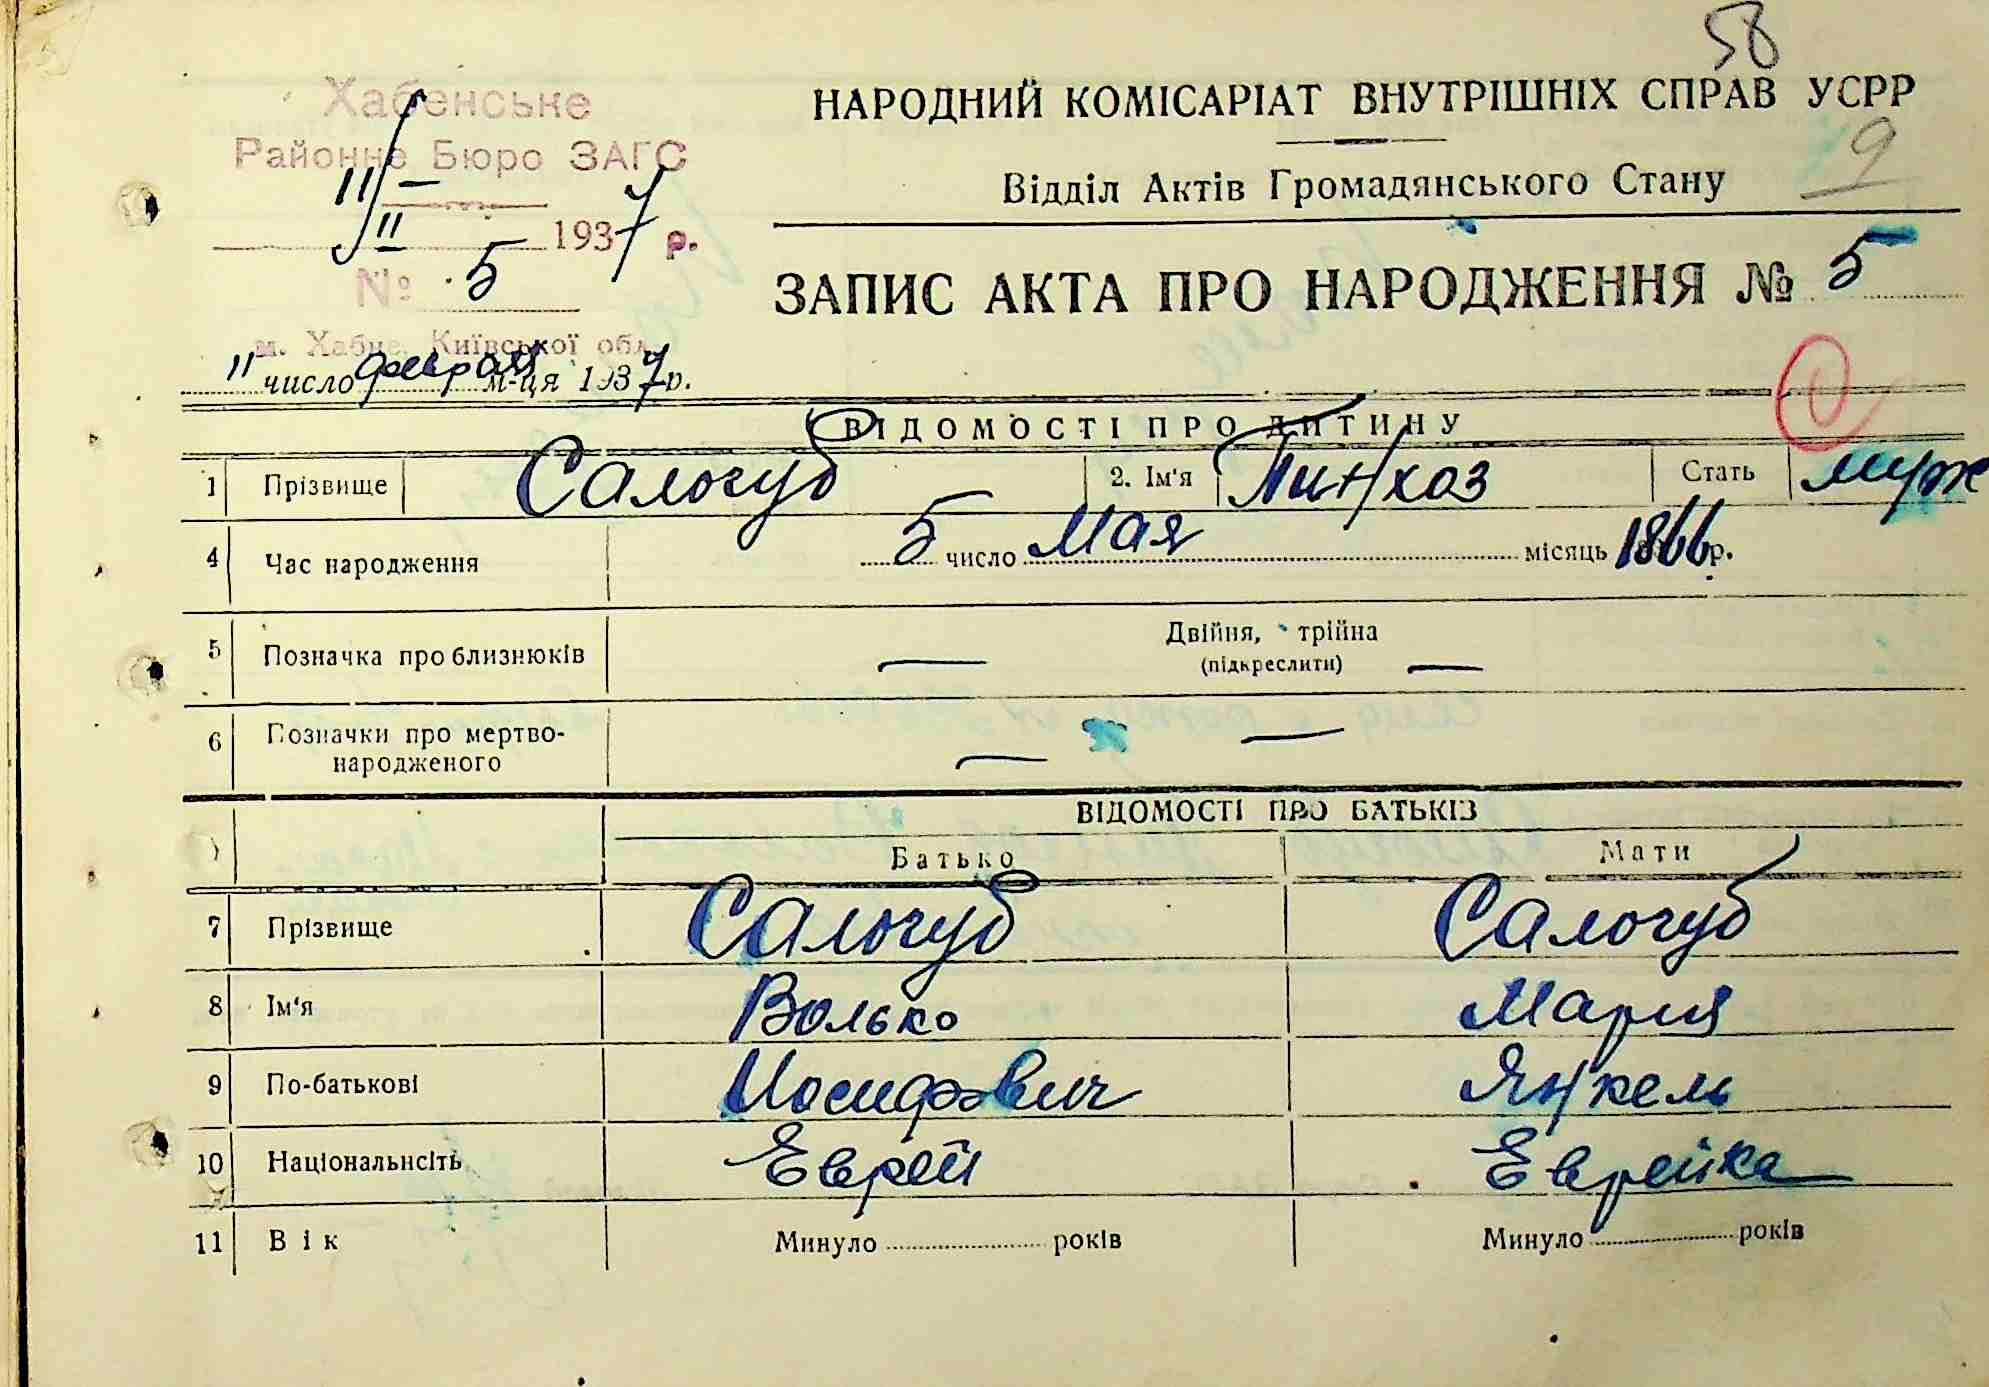 58
Хабенське
Районне Бюро ЗАГС
11/II 1937 р.
№ 5
м. Хабне, Київської обл.
НАРОДНИЙ КОМІСАРІАТ ВНУТРІШНІХ СПРАВ УСРР
9
Відділ Актів Громадянського Стану
ЗАПИС АКТА ПРО НАРОДЖЕННЯ № 5
11 число февраля м-ця 1937 р.
ВІДОМОСТІ ПРО ДИТИНУ
1 Прізвище Салогуб 2. Ім'я Пинхоз Стать муж
4 Час народження 5 число Мая місяць 1866 р.
5 Позначка про близнюків — Двійня, трійна —
(підкреслити)
6 Позначки про мертво-
народженого — —
ВІДОМОСТІ ПРО БАТЬКІВ
Батько Мати
7 Прізвище Салогуб Салогуб
8 Ім'я Волько Мария
9 По-батькові Иосифович Янкель
10 Національнсіть Еврей Еврейка
11 Вік Минуло років Минуло років